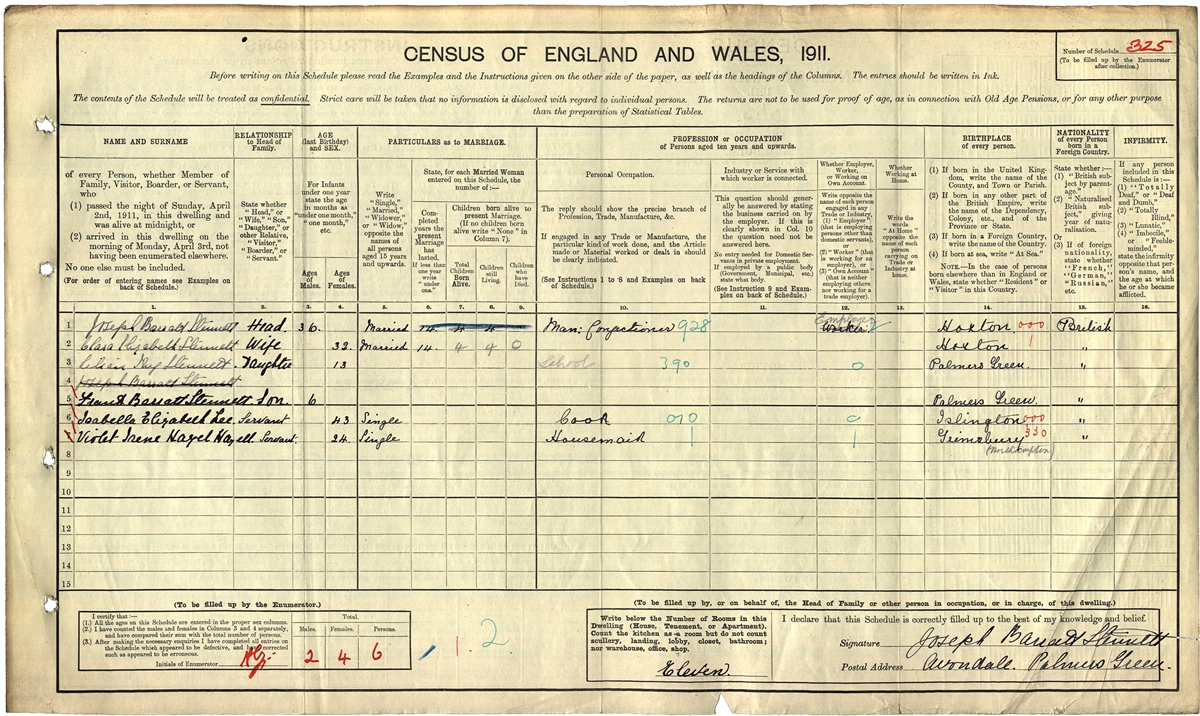 Number of Schedule 325
(To be filled up by the Enumerator
after collection.)
CENSUS OF ENGLAND AND WALES, 1911.
Before writing on this Schedule please read the Examples and the Instructions given on the other side of the paper, as well as the headings of the Columns. The entries should be written in Ink.
The contents of the Schedule will be treated as confidential. Strict care will be taken that no information is disclosed with regard to individual persons. The returns are not to be used for proof of age, as in connection with Old Age Pensions, or for any other purpose
than the preparation of Statistical Tables.
NAME AND SURNAME
of every Person, whether Member of
Family, Visitor, Boarder, or Servant,
who
(1) passed the night of Sunday, April
2nd, 1911, in this dwelling and
was alive at midnight, or
(2) arrived in this dwelling on the
morning of Monday, April 3rd, not
having been enumerated elsewhere.
No one else must be included.
(For order of entering names see Examples on
back of Schedule.)
RELATIONSHIP
to Head of
Family.
State whether
"Head," or
"Wife," "Son,"
"Daughter," or
other Relative,
"Visitor,"
"Boarder," or
"Servant."
AGE
(last Birthday)
and SEX.
For Infants
under one year
state the age
in months as
"under one month,"
"one month,"
etc.
Ages
of
Males.
Ages
of
Females.
PARTICULARS as to MARRIAGE.
Write
"Single,"
"Married,"
"Widower,"
or "Widow,"
opposite the
names of
all persons
aged 15 years
and upwards.
State, for each Married Woman
entered on this Schedule, the
number of:—
Completed
years the
present
Marriage
has
lasted.
If less than
one year
write
"under
one."
Children born alive to
present Marriage.
(If no children born
alive write "None" in
Column 7).
Total
Children
Born
Alive.
Children
still
Living.
Children
who
have
Died.
PROFESSION or OCCUPATION
of Persons aged ten years and upwards.
Personal Occupation.
The reply should show the precise branch of
Profession, Trade, Manufacture, &c.
If engaged in any Trade or Manufacture, the
particular kind of work done, and the Article
made or Material worked or dealt in should
be clearly indicated.
(See Instructions 1 to 8 and Examples on back
of Schedule.)
Industry or Service
with which worker is connected.
This question should gener-
ally be answered by stating
the business carried on by
the employer. If this is
clearly shown in Col. 10
the question need not be
answered here.
No entry needed for Domestic Ser-
vants in private employment.
If employed by a public body
(Government, Municipal, etc.)
state what body.
(See Instruction 9 and Exam-
ples on back of Schedule.)
Whether Employer,
Worker,
or Working on
Own Account.
Write opposite the
name of each person
engaged in any
Trade or Industry,
(1) "Employer"
(that is employing
persons other than
domestic servants),
or
(2) "Worker" (that
is working for an
employer), or
(3) "Own Account"
(that is neither
employing others
nor working for a
trade employer).
Whether
Working at
Home.
Write the
words
"At Home"
opposite the
name of each
person
carrying on
Trade or
Industry at
home.
BIRTHPLACE
of every person.
(1) If born in the United King-
dom, write the name of the
County, and Town or Parish.
(2) If born in any other part of
the British Empire, write
the name of the Dependency,
Colony, etc., and of the
Province or State.
(3) If born in a Foreign Country,
write the name of the Country.
(4) If born at sea, write "At Sea."
NOTE.—In the case of persons
born elsewhere than in England or
Wales, state whether "Resident" or
"Visitor" in this Country.
NATIONALITY
of every Person
born in a
Foreign Country.
State whether:—
(1) "British
subject by
parent-
age."
(2) "Naturalised
British sub-
ject," giving
year of natu-
ralisation.
Or
(3) If of foreign
nationality,
state whether
"French,"
"German,"
"Russian,"
etc.
INFIRMITY.
If any person
included in this
Schedule is:—
(1) "Totally
Deaf," or "Deaf
and Dumb,"
(2) "Totally
Blind,"
(3) "Lunatic,"
(4) "Imbecile,"
or "Feeble-
minded,"
state the infirmity
opposite that per-
son's name, and
the age at which
he or she became
afflicted.
1. 2. 3. 4. 5. 6. 7. 8. 9. 10. 11. 12. 13. 14. 15. 16.
1 Joseph Barratt Stennett Head 36. Married 14. 4 4 Man: Confectioner 928 Worker Employer 2 Hoxton 000 British
2 Clara Elizabeth Stennett Wife 32. Married 14. 4 4 0 Hoxton 1 "
3 Lilian Stennett Daughter 13 School 390 0 Palmers Green. "
4 Joseph Barratt Stennett
5 Frank Barratt Stennett Son. 6 Palmers Green. "
6 Isabella Elizabeth Lee. Servant 43 Single Cook 070 0 Islington 000 "
7 Violet Irene Hazel Hazell Servant. 24. Single Housemaid 1 1 Grimsbury 330 "
(Northampton)
8
9
10
11
12
13
14
15
(To be filled up by the Enumerator.)
I certify that:—
(1.) All the ages on this Schedule are entered in the proper sex columns.
(2.) I have counted the males and females in Columns 3 and 4 separately,
and have compared their sum with the total number of persons.
(3.) After making the necessary enquiries I have completed all entries on
the Schedule which appeared to be defective, and have corrected
such as appeared to be erroneous.
Initials of Enumerator
Total.
Males. Females. Persons.
2 4 6
1. 2.
(To be filled up by, or on behalf of, the Head of Family or other person in occupation, or in charge, of this dwelling.)
Write below the Number of Rooms in this
Dwelling (House, Tenement, or Apartment).
Count the kitchen as a room but do not count
scullery, landing, lobby, closet, bathroom;
nor warehouse, office, shop.
Eleven
I declare that this Schedule is correctly filled up to the best of my knowledge and belief.
Signature Joseph Barratt Stennett
Postal Address Avondale. Palmers Green.